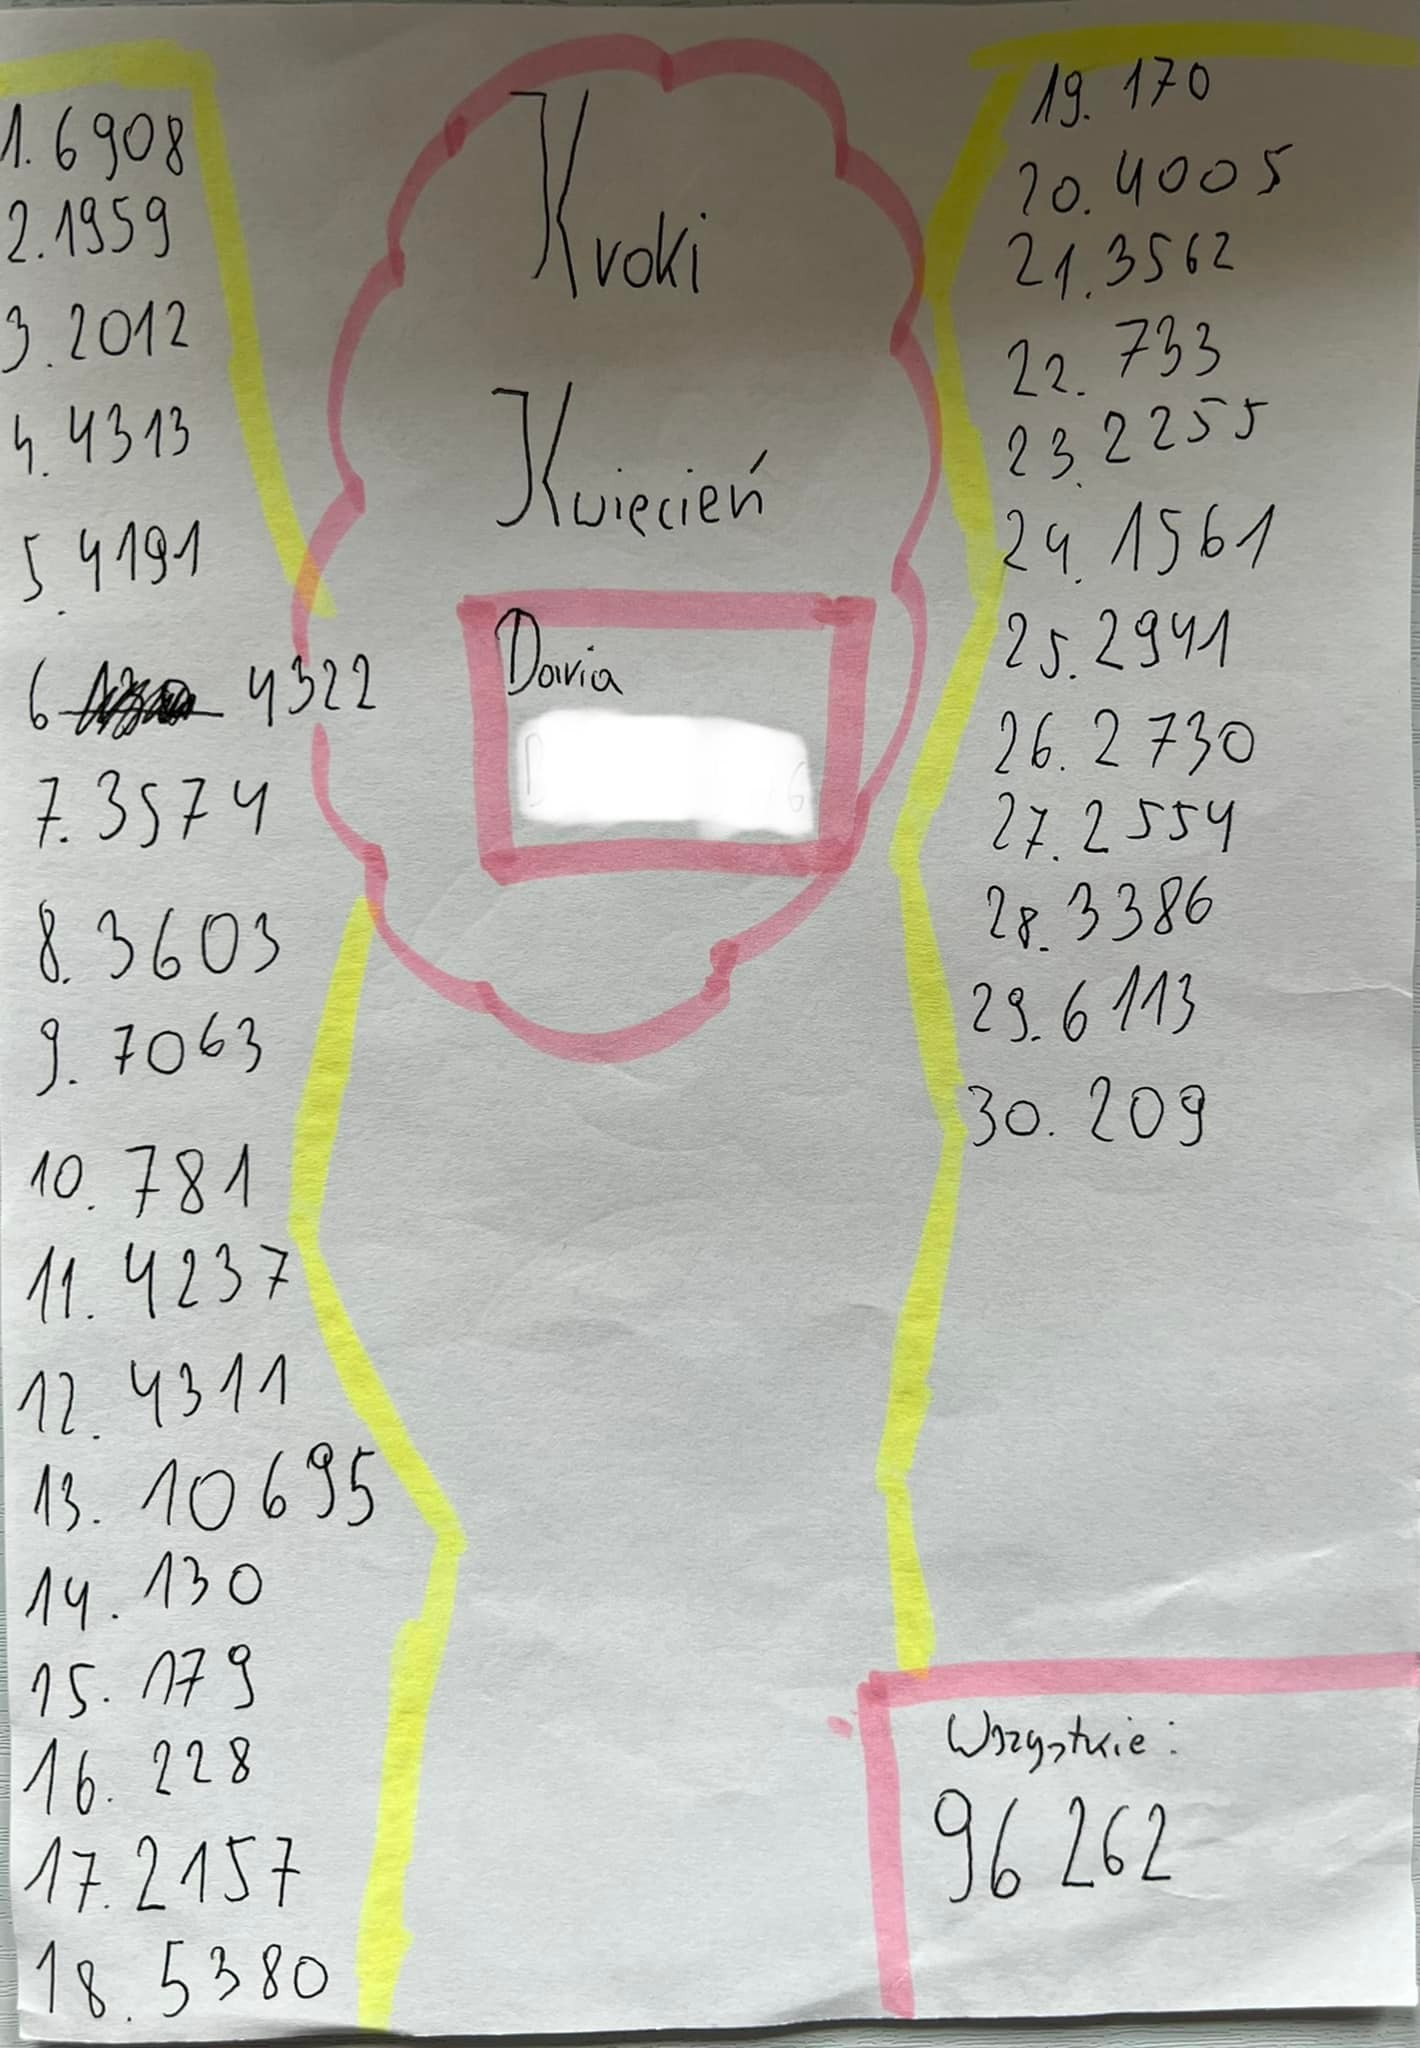 Kroki
Kwiecień
Daria
1. 6908
2. 1959
3. 2012
4. 4313
5. 4191
6 4322
7. 3574
8. 3603
9. 7063
10. 781
11. 4237
12. 4311
13. 10695
14. 130
15. 179
16. 228
17. 2157
18. 5380
19. 170
20. 4005
21. 3562
22. 733
23. 2255
24. 1561
25. 2941
26. 2730
27. 2554
28. 3386
29. 6113
30. 209
Wszystkie:
96 262